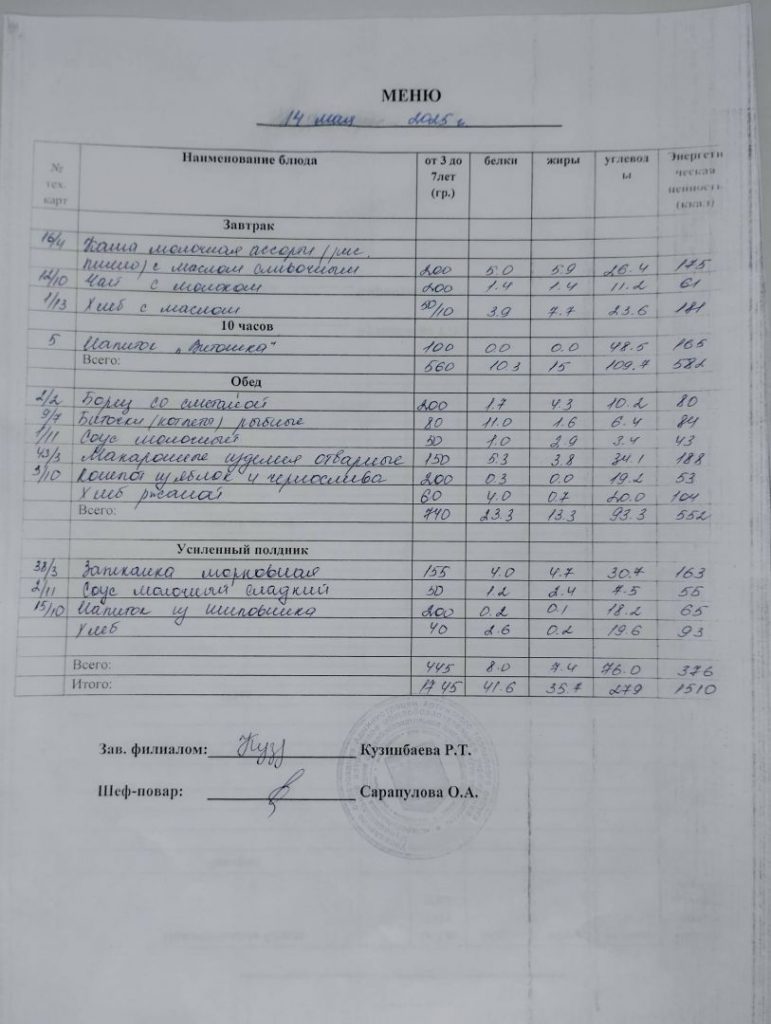 МЕНЮ
14 мая 2025 г.
№ тех. карт Наименование блюда от 3 до 7лет (гр.) белки жиры углеводы Энергетическая ценность (ккал)
Завтрак
16/4 Каша молочная ассорти (рис,
пшено) с маслом сливочным 200 5.0 5.9 26.4 175
12/10 Чай с молоком 200 1.4 1.4 11.2 61
1/13 Хлеб с маслом 50/10 3.9 7.7 23.6 181
10 часов
5 Напиток "Витошка" 100 0.0 0.0 48.5 165
Всего: 560 10.3 15 109.7 582
Обед
2/2 Борщ со сметаной 200 1.7 4.3 10.2 80
9/7 Биточки (котлеты) рыбные 80 11.0 1.6 6.4 84
1/11 Соус молочный 50 1.0 2.9 3.4 43
43/3 Макаронные изделия отварные 150 5.3 3.8 34.1 188
3/10 Компот из яблок и чернослива 200 0.3 0.0 19.2 53
Хлеб ржаной 60 4.0 0.7 20.0 104
Всего: 740 23.3 13.3 93.3 552
Усиленный полдник
38/3 Запеканка морковная 155 4.0 4.7 30.7 163
2/11 Соус молочный сладкий 50 1.2 2.4 7.5 55
15/10 Напиток из шиповника 200 0.2 0.1 18.2 65
Хлеб 40 2.6 0.2 19.6 93
Всего: 445 8.0 7.4 76.0 376
Итого: 1745 41.6 35.7 279 1510
Зав. филиалом: Куз Кузинбаева Р.Т.
Шеф-повар: Сарапулова О.А.